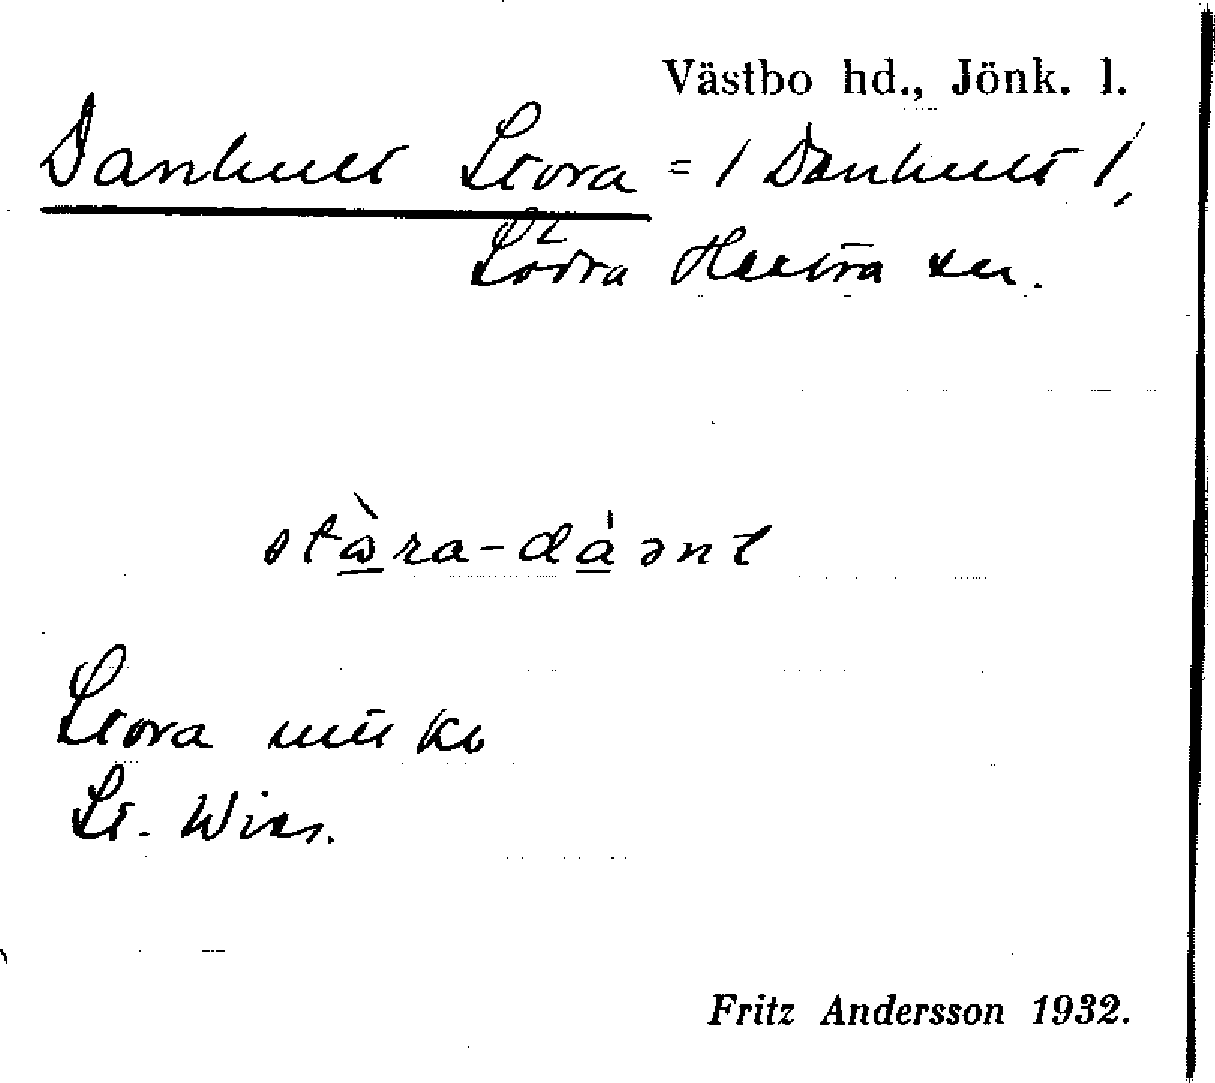 Västbo hd., Jönk. l.
Danhult Stora = / Danhult /,
Södra Hestra sn.
stɷ̀ra-dáənt
Stora
St. Wiss.
Fritz Andersson 1932.